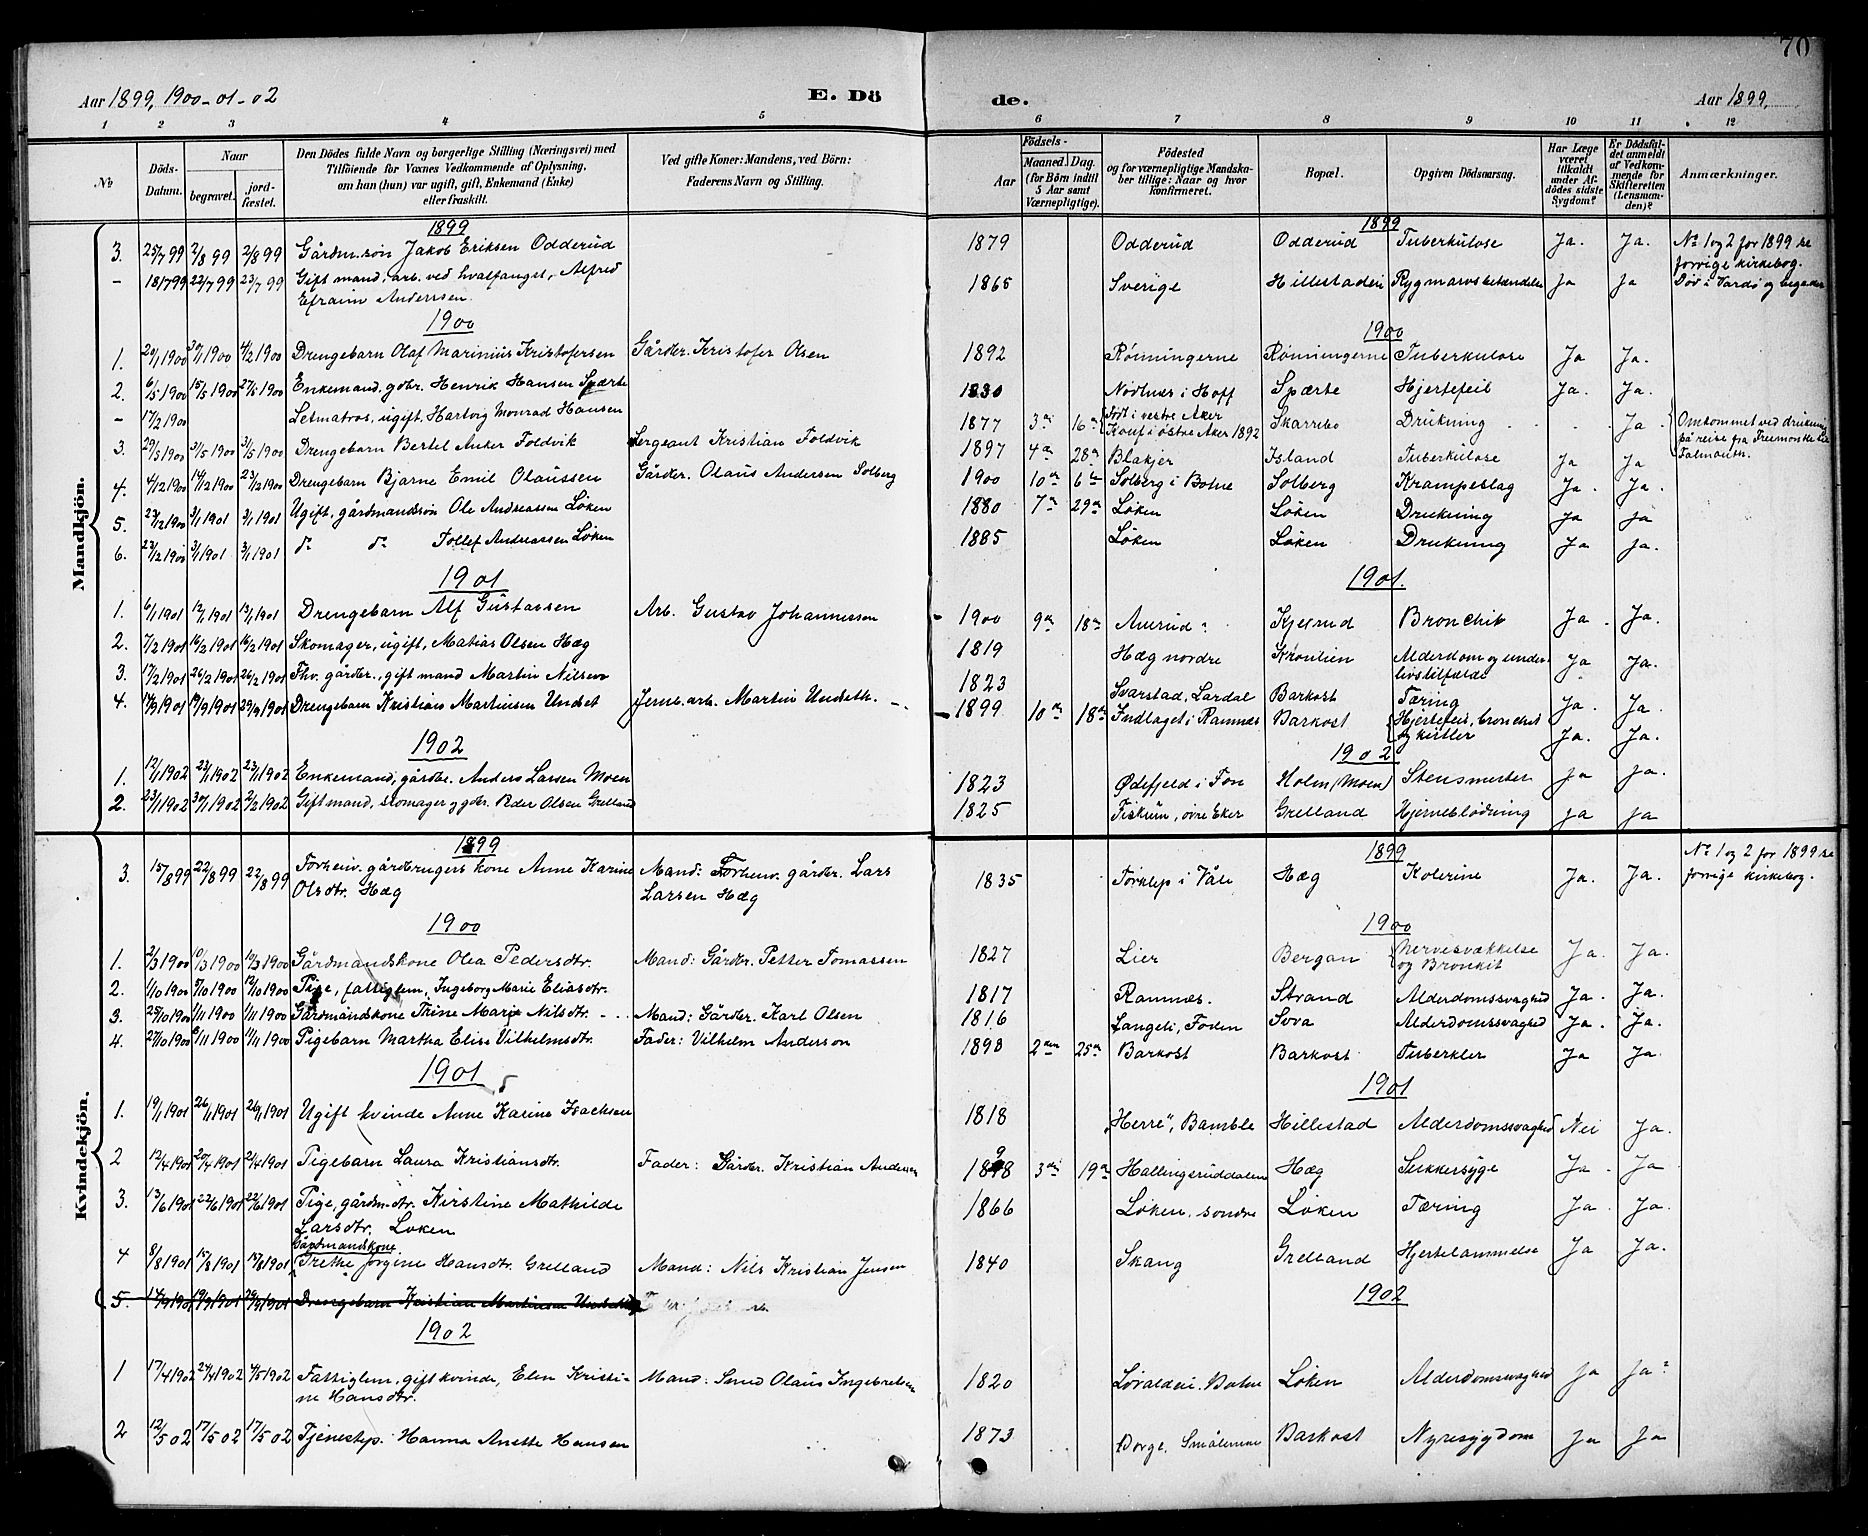 70
Aar 1899, 1900-01-02 E. Dö de. Aar 1899,
1 2 3 4 5 6 7 8 9 10 11 12
No
Döds-Datum.
Naar
begravet.
jord-fæstet.
Den Dödes fulde Navn og borgerlige Stilling (Næringsvei) med
Tilföiende for Voxnes Vedkommende af Oplysning,
om han (hun) var ugift, gift, Enkemand (Enke)
eller fraskilt.
Ved gifte Koner: Mandens, ved Börn:
Faderens Navn og Stilling.
Födsels-
Aar
Maaned. Dag.
(for Börn indtil
5 Aar samt
Værnepligtige).
Födested
og for værnepligtige Mandska-
ber tillige: Naar og hvor
konfirmeret.
Bopæl.
Opgiven Dödsaarsag.
Har Læge
været
tilkaldt
under Af-
dödes sidste
Sygdom?
Er Dödsfal-
det anmeldt
af Vedkom-
mende for
Skifteretten
(Lensman-
den)?
Anmærkninger.
Mandkjön.
1899 1899
3. 25/7 99 2/8 99 2/8 99 Gårdm.søn Jakob Eriksen Odderud 1879 Odderud Odderud Tuberkulose Ja. Ja. No 1 og 2 for 1899 se forrige kirkebog.
- 18/7 99 22/7 99 23/7 99 Gift mand, arb. ved hvalfanget, Alfred
Efraim Andersen. 1865 Sverige Hillestadeie Rygmarvsbetændelse Ja Ja Død i Vardø og
1900 1900
1. 20/1 1900 30/1 1900 4/2 1900 Drengebarn Olaf Marinius Kristofersen Gårdbr. Kristofer Olsen 1892 Rønningerne Rønningerne Tuberkulose Ja Ja.
2. 6/5 1900 15/5 1900 27/5 1900 Enkemand, gdbr. Henrik Hansen Spærte 1830 i Hoff Spærte Hjertefeil Ja. Ja.
- 17/2 1900 Letmatros, ugift, Hartvig Monrad Hansen 1877 3die 16de Født i vestre Aker Konf i østre Aker 1892 Skarrebo Drukning Ja. Omkommet ved drukning
på reise fra til
Falmouth.
3. 29/5 1900 3/5 1900 3/5 1900 Drengebarn Bertel Anker Foldvik Sergeant Kristian Foldvik 1897 4de 28de Blakjer Island Tuberkulose Ja Ja
4. 4/12 1900 14/12 1900 23/12 1900 Drengebarn Bjarne Emil Olaussen Gårdbr. Olaus Andersen Solberg 1900 10de 6te Solberg i Botne Solberg Krampeslag Ja. Ja.
5. 23/12 1900 3/1 1901 3/1 1901 Ugift, gårdmandssøn Ole Andreassen Løken 1880 7de 29de Løken Løken Drukning Ja Ja
6. 23/12 1900 3/1 1901 3/1 1901 do do Tollef Andreassen Løken 1885 Løken Løken Drukning Ja Ja.
1901 1901.
1. 6/1 1901 12/1 1901 13/1 1901 Drengebarn Alf Gustavsen Arb. Gustav Johannessen 1900 9de 18de Kjelrud Bronchit Ja. Ja.
2. 7/2 1901 16/2 1901 16/2 1901 Skomager, ugift, Matias Olsen Hæg 1819 Hæg nordre Krønlien Alderdom og under-
livstilfælde Ja Ja.
3. 17/2 1901 26/2 1901 26/2 1901 Fhv. gårdbr., gift mand Martin Nilsen 1823 Svarstad, Lardal Barkost Tæring Ja. Ja.
4. 14/9 1901 19/9 1901 29/9 1901 Drengebarn Kristian Martinsen Undset Jernb. arb. Martin Undseth. 1899 10de 18de Indlaget i Ramnes Barkost Hjertefeil, bronchit
og kirtler Ja. Ja.
1902 1902
1. 12/1 1902 23/1 1902 23/1 1902 Enkemand, gårdbr. Anders Larsen Moen 1823 Ødefjeld i Fon Holm (Moen) Stensmerter Ja Ja.
2. 23/1 1902 30/1 1902 2/2 1902 Gift mand, skomager og gdbr. Peder Olsen Grelland 1825 Fiskum, øvre Eker Grelland Hjerneblødning Ja Ja
Kvindekjön.
1899 1899
3. 15/8 99 22/8 99 22/8 99 Forhenv. gårdbrugers kone Anne Karine
Olsdtr. Hæg Mand: Forhenv. gårdbr. Lars
Larsen Hæg 1835 Torklep i Våle Hæg Kolerine Ja. Ja. No 1 og 2 for 1899 se
forrige kirkebog.
1900 1900
1. 2/3 1900 10/3 1900 10/3 1900 Gårdmandskone Olea Pedersdtr. Mand: Gårdbr. Petter Tomassen 1827 Lier Bergan Nervesvækkelse
og Bronkit Ja. Ja.
2. 1/10 1900 9/10 1900 12/10 1900 Pige, fattiglem, Ingeborg Marie Eliasdtr. 1817 Ramnes. Strand Alderdomssvaghed Ja. Ja.
3. 25/10 1900 1/11 1900 1/11 1900 Gårdmandskone Trine Marie Nilsdtr. Mand: Gårdbr. Karl Olsen 1816 Sova Alderdomssvaghed Ja. Ja.
4. 27/10 1900 8/11 1900 11/11 1900 Pigebarn Martha Elise Vilhelmsdtr. Fader: Vilhelm Anderson 1898 2den 25de Barkost Barkost Tuberkler Ja Ja.
1901 1901
1. 19/1 1901 26/1 1901 26/1 1901 Ugift kvinde Anne Karine Isachsen 1818 "Herre", Bamble Hillestad Alderdomssvaghed Nei Ja.
2 12/4 1901 20/4 1901 21/4 1901 Pigebarn Laura Kristiansdtr. Fader: Gårdbr. Kristian Andersen 1898 3die 19de Hallingsruddalen Hæg Sukkersyge Ja. Ja
3. 13/6 1901 22/6 1901 22/6 1901 Pige, gårdm.dtr. Kirstine Mathilde
Larsdtr. Løken 1866 Løken, søndre Løken Tæring Ja. Ja.
4 8/8 1901 15/8 1901 18/8 1901 Gårdmandskone
Grethe Jørgine Hansdtr. Grelland Mand: Nils Kristian Jensen 1840 Skang Grelland Hjertelammelse Ja Ja.
5. 14/9 1901 19/9 1901 29/9 1901 Drengebarn Kristian Martinsen Undseth
1902 1902
1 17/4 1902 24/4 1902 4/5 1902 Fattiglem, gift kvinde, Elen Kristi-
ne Hansdtr. Mand: Smed Olaus Ingebretsen 1820 Botne Løken Alderdomssvaghed Ja Ja
2 12/5 02 17/5 02 17/5 02 Tjenestep. Hanna Anette Hansen 1873 Borge, Smålenene Barkost Nyresygdom Ja Ja